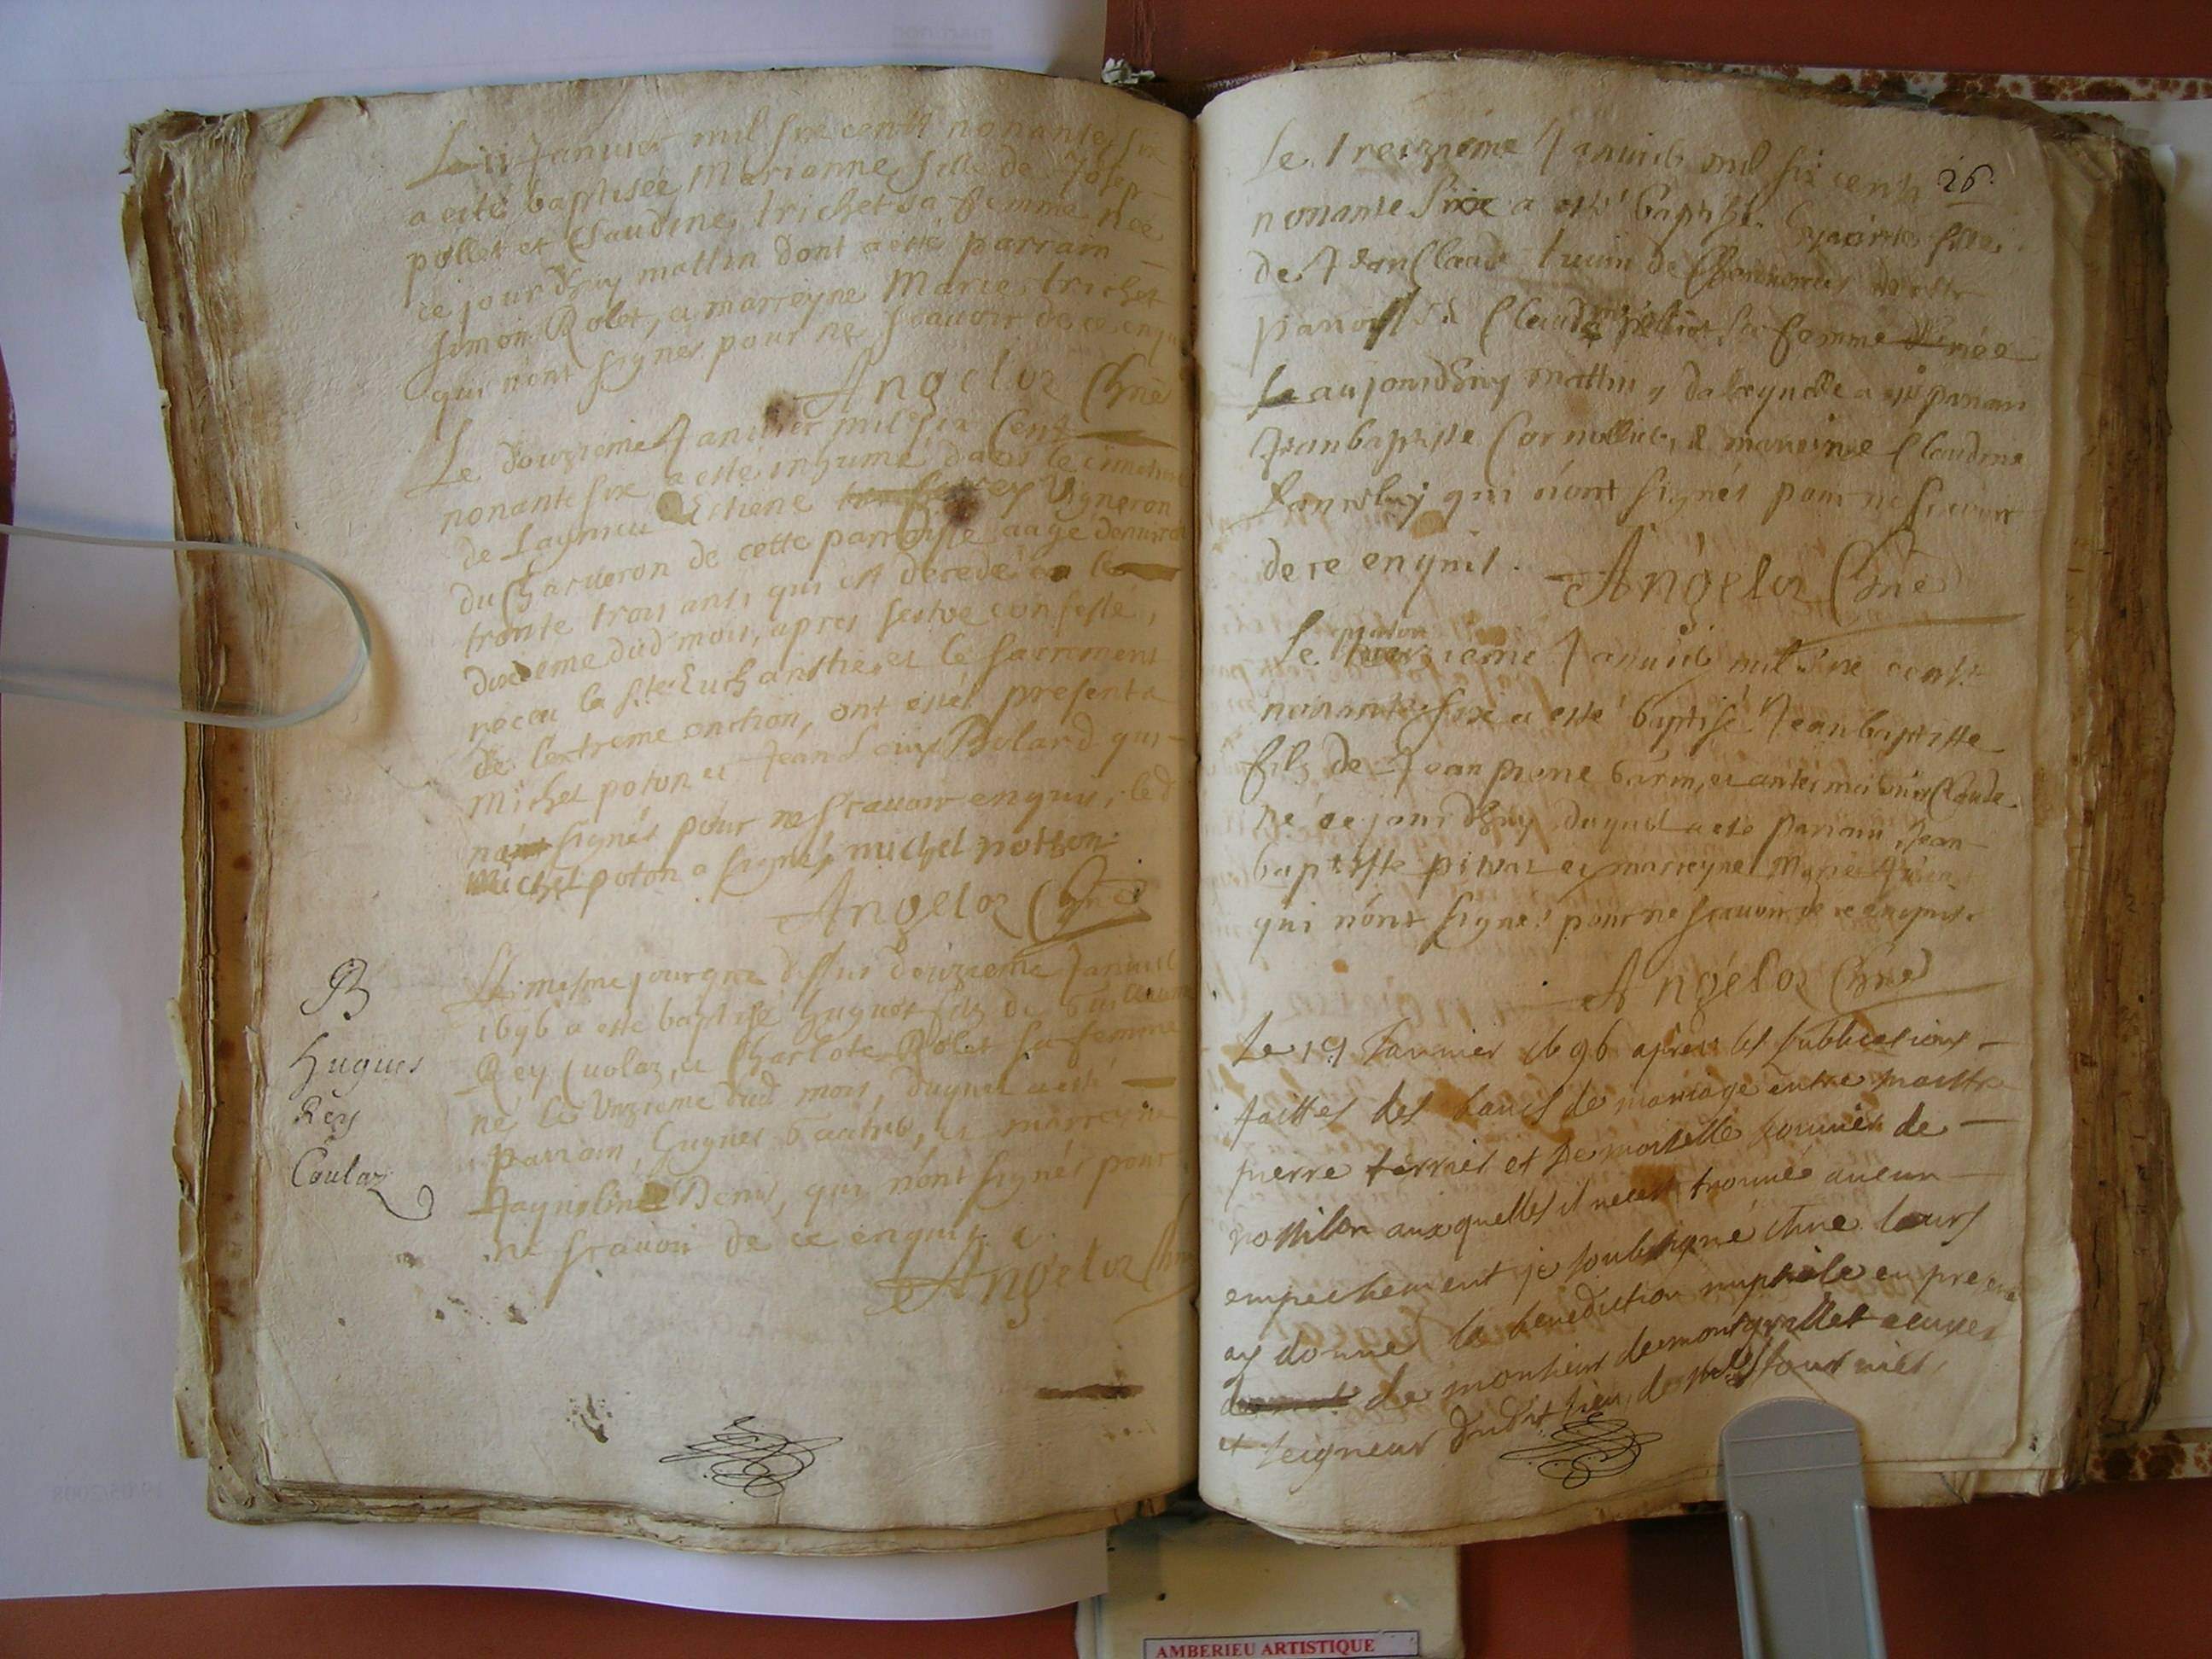 Le 11 Januier mil six cents nonante six
a esté baptisée Marianne fille de Josep
pollet et Claudine trichet sa femme née
ce jourdhuy mattin dont a esté parrain
simon Rolet, et marreyne Marie trichet
qui n'ont signés pour ne scauoir de ce enquis
Angeloz Chne
Le douzieme Januier mil six Cent
nonante six a esté inhumé dans le cimetiere
de Lagnieu Estiene Rey Vigneron
du Charueron de cette parroisse aagé denuiron
trente trois ans, qui est decedé le
dixieme dud mois, apres sestre confessé,
receu la ste Eucharistie, et le sacrement
de l'extreme onction, ont estés presents
Michel poton et Jean Louys Bolard qui
n'a signés pour ne scauoir enquis, led
Michel poton a signé, michel potton
Angeloz Chne
B
Hugues
Rey
Coulaz
Le mesme jour que dessus douzieme Januier
1696 a esté baptisé hugues fils de Guillaume
Rey Cuolaz, et Charlote Rolet sa femme
né le Vnzieme dud mois, duquel a esté
parrain, hugues et marreyne
Jaqueline Denis, qui n'ont signés pour
ne scauoir de ce enquis
Angeloz Chne
26
Le treizieme Januier mil six cents
nonante six a esté baptisé fille
de Jean Claude de
parroisse Claudine sa femme née
aujourdhuy mattin, de laquelle a esté parrain
Jean baptiste Cornillier, et marreine Claudine
qui n'ont signés pour ne scauoir
de ce enquis.
Angeloz Chne
Le Januier mil six cents
nonante six a esté baptisé Jean baptiste
fils de Jean pierre
né ce jourdhuy duquel a esté parrain, Jean
baptiste et marreyne Marie
qui n'ont signés pour ne scauoir de ce enquis.
Angeloz Chne
Le 19 Januier 1696 apres les publications
faittes des bancs de mariage entre maistre
pierre terrier et Demoiselle fournier de
aux quelles il ne cest trouué aucun
empechement je soubsigné Chne leurs
ay donné la benediction nuptiale en presence
de monsieur de montgrillet ecuyer
et seigneur dudit lieu, de fournier
AMBERIEU ARTISTIQUE